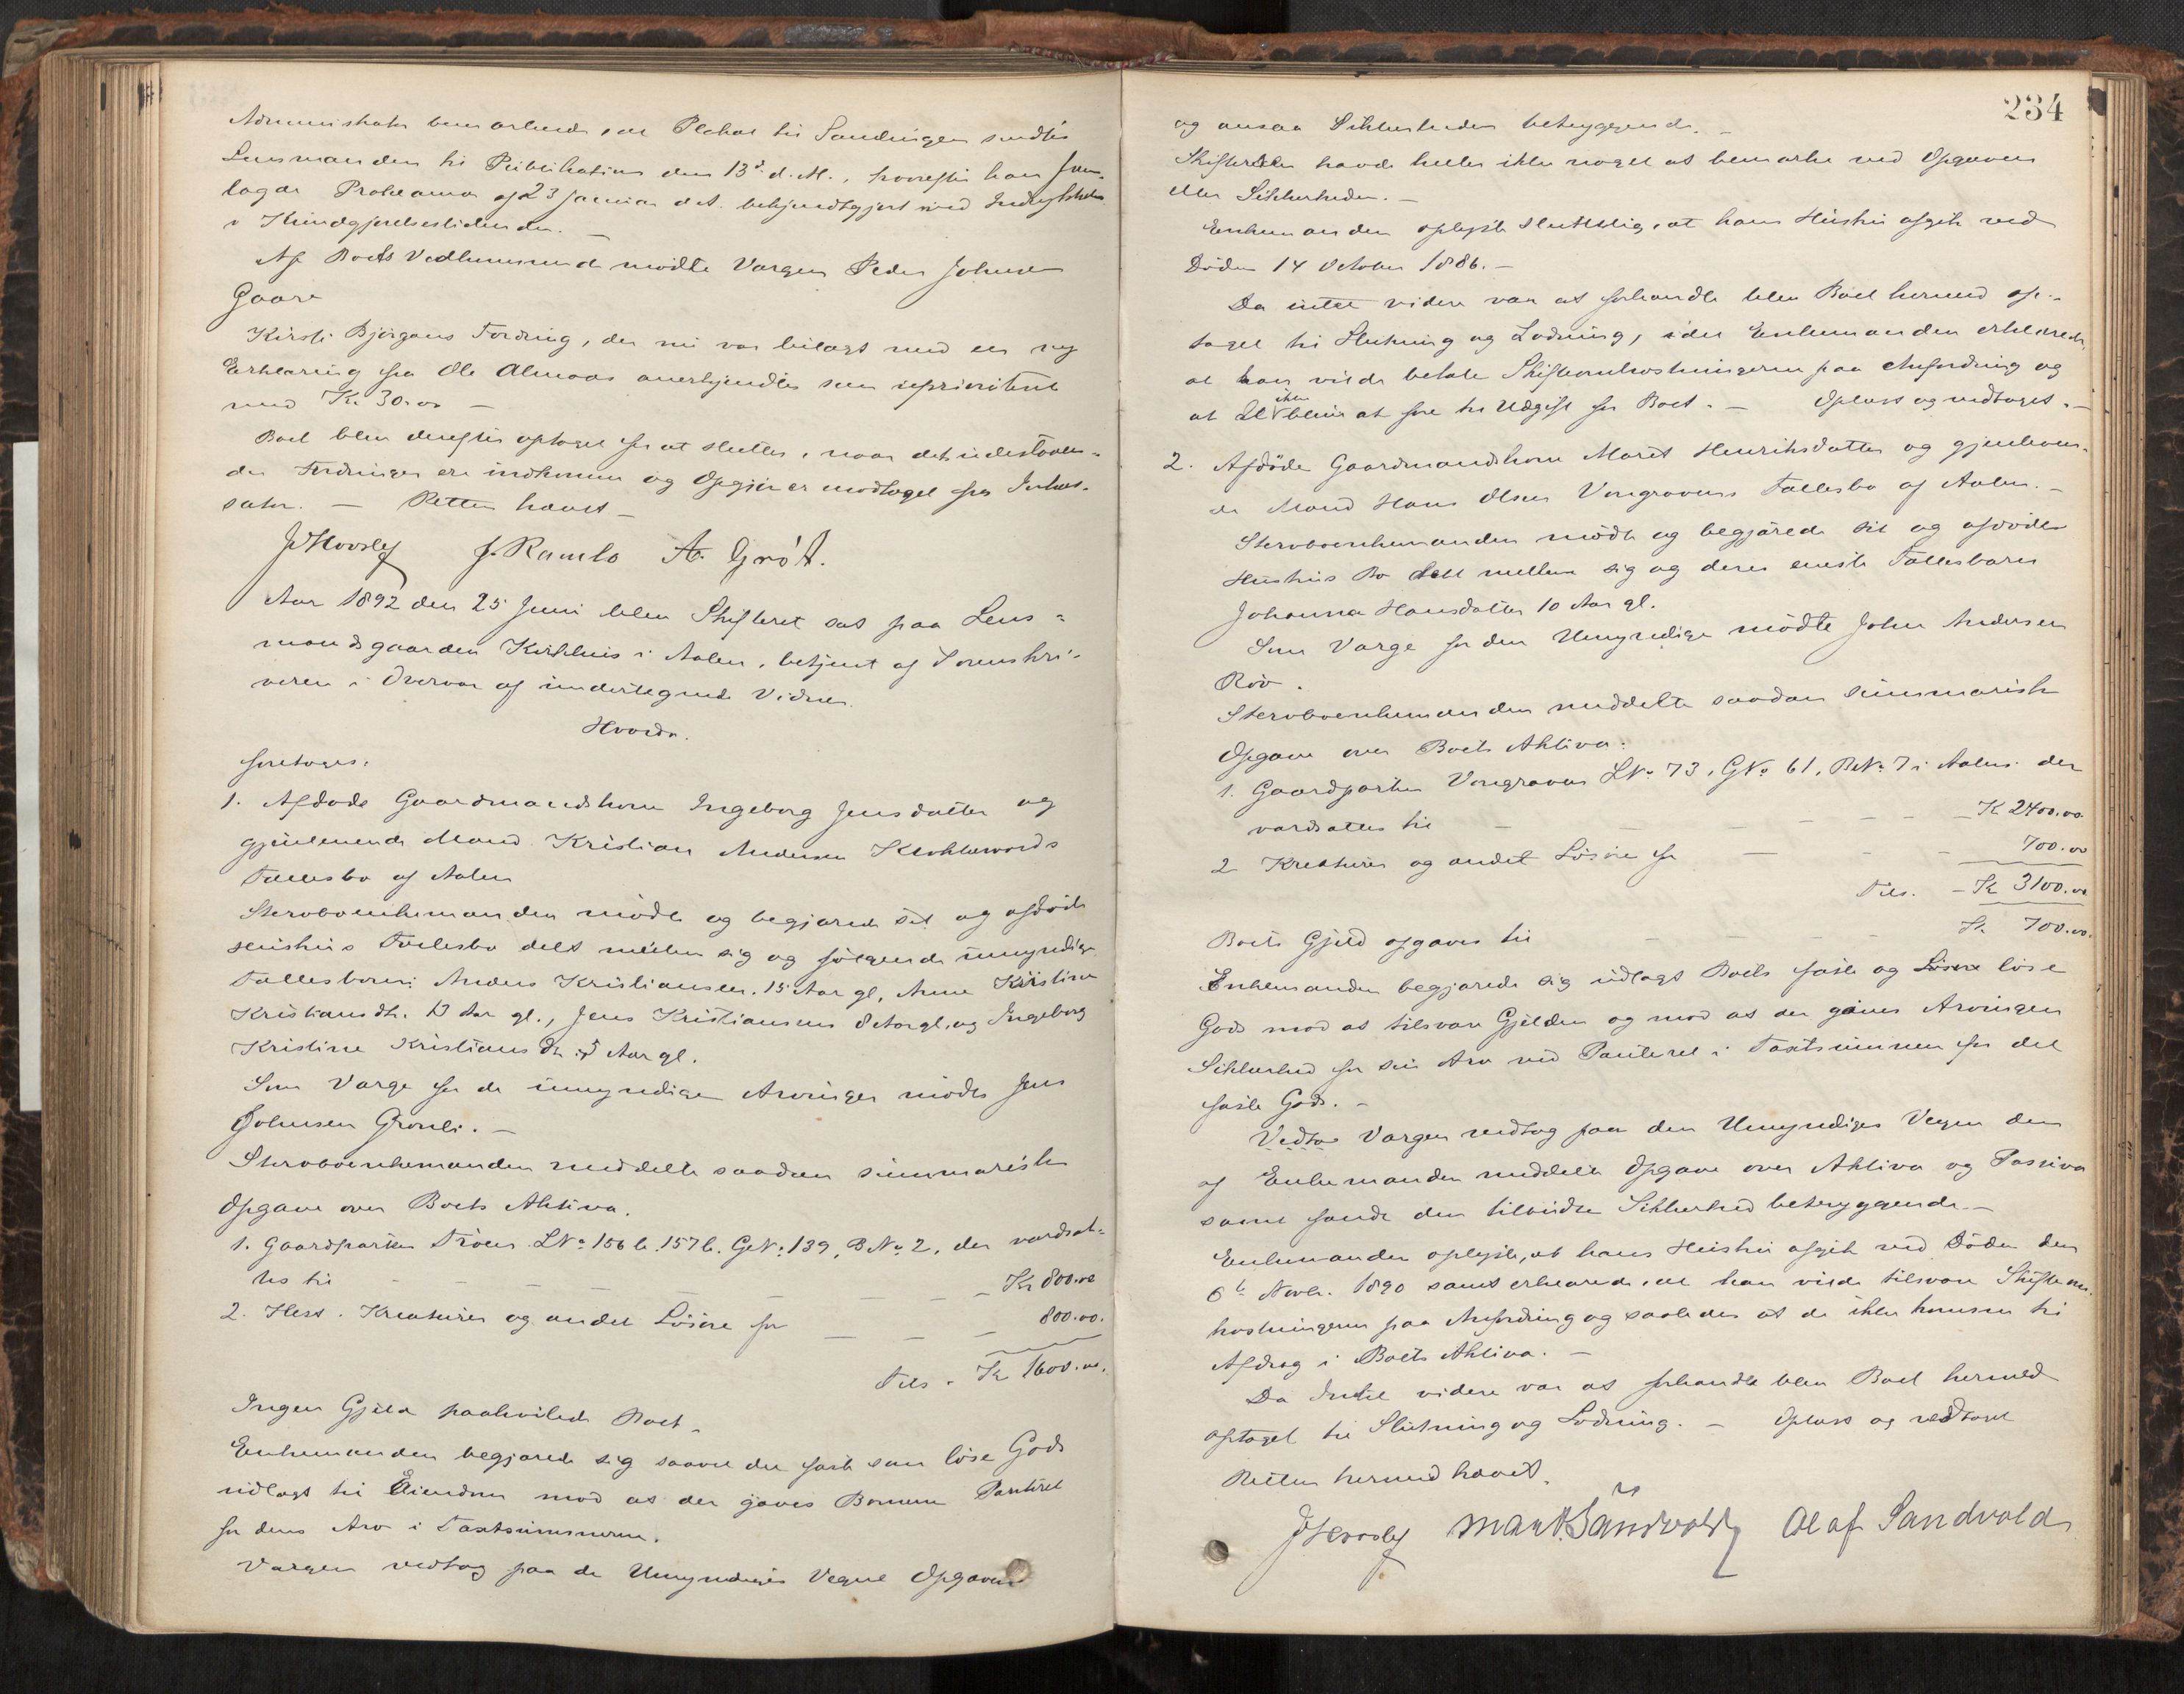 Administrator bemærkede, at Plakat til Samlingen sendtes
Lensmanden til Publikation den 13de d. M., hvorefter han frem-
lagde Proklama af 23 Januar d.A. bekjendtgjort ved Indrykkelse
i Kundgjørelsestidende. —
Af Boets Vedkommende mødte Vergen Peder Johnsen
Gaare
Kirsti Bjørgans Fordring, der nu var bilagt med en ny
Erklæring fra Ole Almaas anerkjendtes som uprioriteret
med Kr 30.00 —
Boet blev derefter optaget for at sluttes, naar de udestaaen-
de Fordringer ere indkomne og Opgjør er modtaget fra Inkas-
sator. — Retten hævet —
J Hovslef J. Ramlo A. Grøt.
Aar 1892 den 25 Juni blev Skifteret sat paa Lens-
mandsgaarden Kirkhus i Aalen, betjent af Sorenskri-
veren i Overvær af undertegnede Vidner.
Hvorda.
foretoges:
1. Afdøde Gaardmandskone Ingeborg Jensdatter og
gjenlevende Mand Kristian Andersen
Fællesbo af Aalen
Stervboenkemanden mødte og begjærede sit og afdøde
Hustrus Fællesbo delt mellem sig og følgende umyndige
Fællesbørn: Anders Kristiansen 15 Aar gl, Anne Kirstine
Kristiansdtr. 13 Aar gl., Jens Kristiansen 8 Aar gl. og Ingeborg
Kristine Kristiansdtr. 5 Aar gl.
Som Verge for de umyndige Arvinger mødte Jens
Johnsen Grønli. —
Stervboenkemanden meddelte saadan summarisk
Opgave over Boets Aktiva.
1. Gaardparten Trøen LNo 156 b. 157 b. GNo 139, BNo 2, der værdsat-
tes til — — — — — — Kr 800.00
2. Hest, Kreaturer og andet Løsøre for — — — 800.00.
Tils. Kr 1600.00.
Ingen Gjeld paahvilede Boet.
Enkemanden begjærede sig saavel det faste som løse Gods
udlagt til Eiendom mod at der gaves Børnene Panteret
for deres Arv i Taxtsummerne.
Vergen vedtog paa de Umyndiges Vegne Opgaven
234
og ansaa Sikkerheden betryggende. —
Skifteretten havde heller ikke noget at bemærke ved Opgaven
eller Sikkerheden. —
Enkemanden oplyste sluttelig, at hans Hustru afgik ved
Døden 14 October 1886. —
Da intet videre var at forhandle blev Boet hermed op-
taget til Slutning og Lodning, idet Enkemanden erklærede,
at han vilde betale Skifteomkostningerne paa Anfordring og
at de ikke blive at føre til Udgift for Boet. — Oplæst og vedtaget. —
2. Afdøde Gaardmandskone Marit Henriksdatter og gjenleven-
de Mand Hans Olsen Vongravens Fællesbo af Aalen. —
Stervboenkemanden mødte og begjærede sit og afdøde
Hustrus Bo delt mellem sig og deres eneste Fællesbarn
Johanna Hansdatter 10 Aar gl.
Som Verge for den Umyndige mødte John Andersen
Röv.
Stervboenkemanden meddelte saadan summarisk
Opgave over Boets Aktiva:
1. Gaardparten Vongraven LNo 73, GNo 61, BNo 7 i Aalen der
værdsattes til — — — — — — Kr 2400.00.
2 Kreaturer og andet Løsøre for — — — 700.00
Tils. — Kr 3100.00
Boets Gjeld opgaves til — — — — Kr 700.00.
Enkemanden begjærede sig udlagt Boets faste og Løsøre løse
Gods mod at tilsvare Gjelden og mod at der gives Arvingen
Sikkerhed for sin Arv ved Panteret i Taxtsummen for det
faste Gods. —
Vedtor Vergen vedtog paa den Umyndiges Vegne den
af Enkemanden meddelte Opgave over Aktiva og Passiva
samt fandt den tilbudte Sikkerhed betryggende. —
Enkemanden oplyste, at hans Hustru afgik ved Døden den
6te Novbr. 1890 samt erklærede, at han vilde tilsvare Skifteom-
kostningerne paa Anfordring og saaledes at de ikke komme til
Afdrag i Boets Aktiva. —
Da Intet videre var at forhandle blev Boet hermed
optaget til Slutning og Lodning. — Oplæst og vedtaget
Retten hermed hævet.
J Hovslef Sandvold Olaf Sandvold